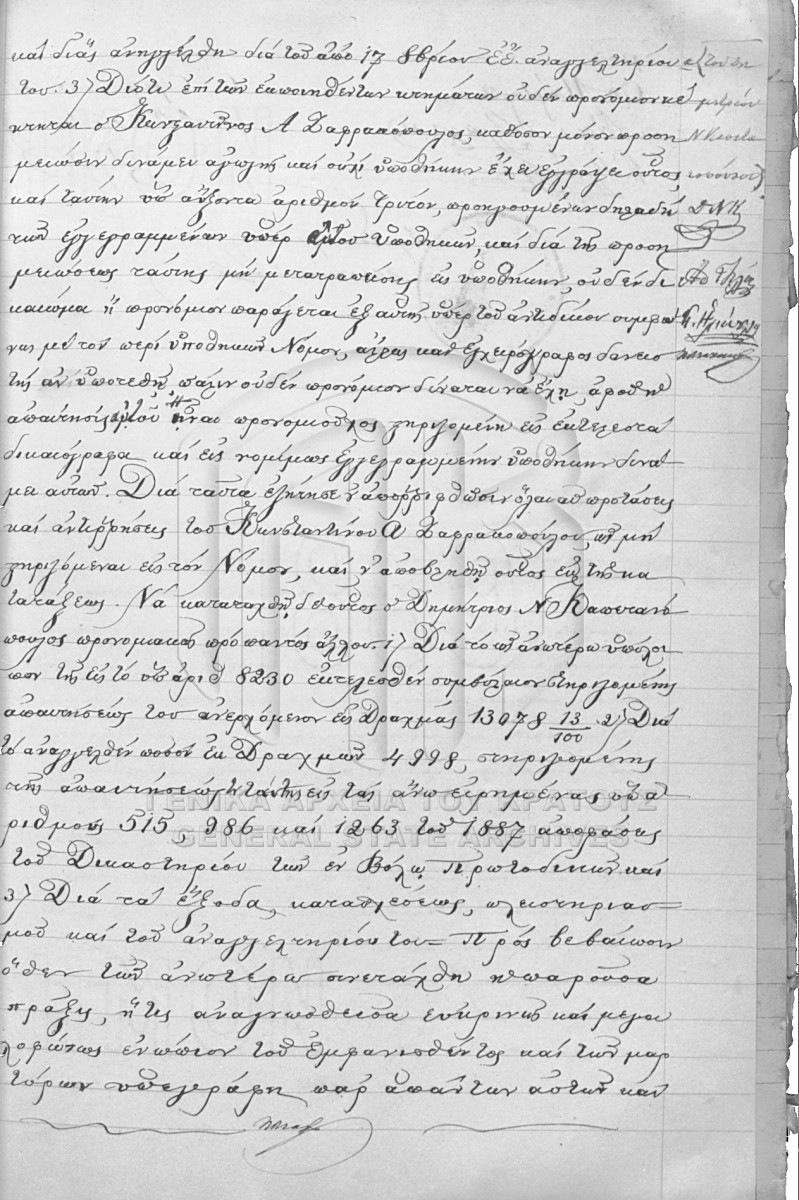 καὶ δι' ἃς ἀνηγγέλθη διὰ τοῦ ἀπὸ 17 8βρίου ἐ.ἔ. ἀναγγελτηρίου
του. 3) Διότι ἐπὶ τῶν ἐκποιηθέντων κτημάτων οὐδὲν προνόμιον κέ
κτηται ὁ Κωνσταντῖνος Α Σαφρακόπουλος, καθόσον μόνον προση
μείωσιν δυνάμει ἀγωγῆς καὶ οὐχὶ ὑποθήκην ἔχει ἐγγράψει οὗτος,
καὶ ταύτην ὑπ' αὔξοντα ἀριθμὸν τρίτον, προηγουμένων δηλαδὴ
τῶν ἐγγεγραμμένων ὑπὲρ ὑποθηκῶν, καὶ διὰ τῆς προση
μειώσεως ταύτης μὴ μετατραπείσης εἰς ὑποθήκην, οὐδὲν δι
καίωμα ἢ προνόμιον παράγεται ἐξ αὐτῆς ὑπὲρ τοῦ ἀντιδίκου συμφώ
νως μὲ τὸν περὶ ὑποθηκῶν Νόμον, ἐγχειρόγραφος δανεισ
τὴς ἂν ὑποτεθῇ πάλιν οὐδὲν προνόμιον δύναται νὰ ἔχῃ, ἀφοῦ ἡ
ἀπαίτησίς μου εἶναι προνομιοῦχος στηριζομένη εἰς ἐκτελεστὰ
δικαιόγραφα καὶ εἰς νομίμως ἐγγεγραμμένην ὑποθήκην δυνά
μει αὐτῶν. Διὰ ταῦτα ἐζήτησε ν' ἀποῤῥιφθῶσιν ὅλαι αἱ προτάσεις
καὶ ἀντιῤῥήσεις τοῦ Κωνσταντίνου Α Σαφρακοπούλου, ὡς μὴ
στηριζόμεναι εἰς τὸν Νόμον, καὶ ν' ἀποβληθῇ οὗτος ἐκ τῆς κα
τατάξεως. Νὰ καταταχθῇ δὲ οὗτος ὁ Δημήτριος Ν Καπετανό
πουλος προνομιακῶς πρὸ παντὸς ἄλλου. 1) Διὰ τὸ ὡς ἀνωτέρω ὑπόλοι
πον τῆς εἰς τὸ ὑπ' ἀριθ 8230 ἐκτελεσθὲν συμβόλαιον στηριζομένης
ἀπαιτήσεώς του ἀνερχόμενον εἰς Δραχμὰς 13078 13/100 2) Διὰ
τὸ ἀναγγελθὲν ποσὸν ἐκ Δραχμῶν 4998, στηριζομένης
τῆς ἀπαιτήσεως ταύτης εἰς τὰς ἄνω εἰρημένας ὑπ' ἀ
ριθμοὺς 515, 986 καὶ 1263 τοῦ 1887 ἀποφάσεις
τοῦ Δικαστηρίου τῶν ἐν Βόλῳ Πρωτοδικῶν καὶ
3) Διὰ τὰ ἔξοδα, κατασχέσεως, πλειστηριασ=
μοῦ καὶ τοῦ ἀναγγελτηρίου του= Πρὸς βεβαίωσιν
ὅθεν τῶν ἀνωτέρω συνετάχθη ἡ παροῦσα
πρᾶξις, ἥτις ἀναγνωσθεῖσα εὐκρινῶς καὶ μεγα
λοφώνως ἐνώπιον τοῦ ἐμφανισθέντος καὶ τῶν μαρ
τύρων ὑπεγράφη παρ' ἁπάντων αὐτῶν καὶ
ΓΕΝΙΚΑ ΑΡΧΕΙΑ ΤΟΥ ΚΡΑΤΟΥΣ
GENERAL STATE ARCHIVES